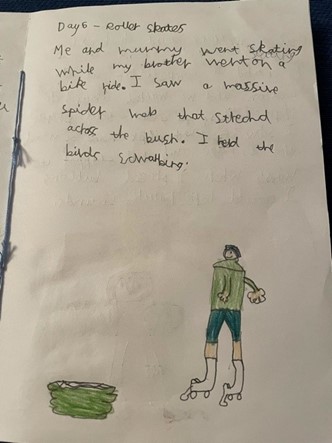 Day 6 - Roller skates
Me and mummy went skating
while my brother went on a
bike ride. I saw a massive
spider web that strechd
across the bush. I herd the
birds sqwarking.